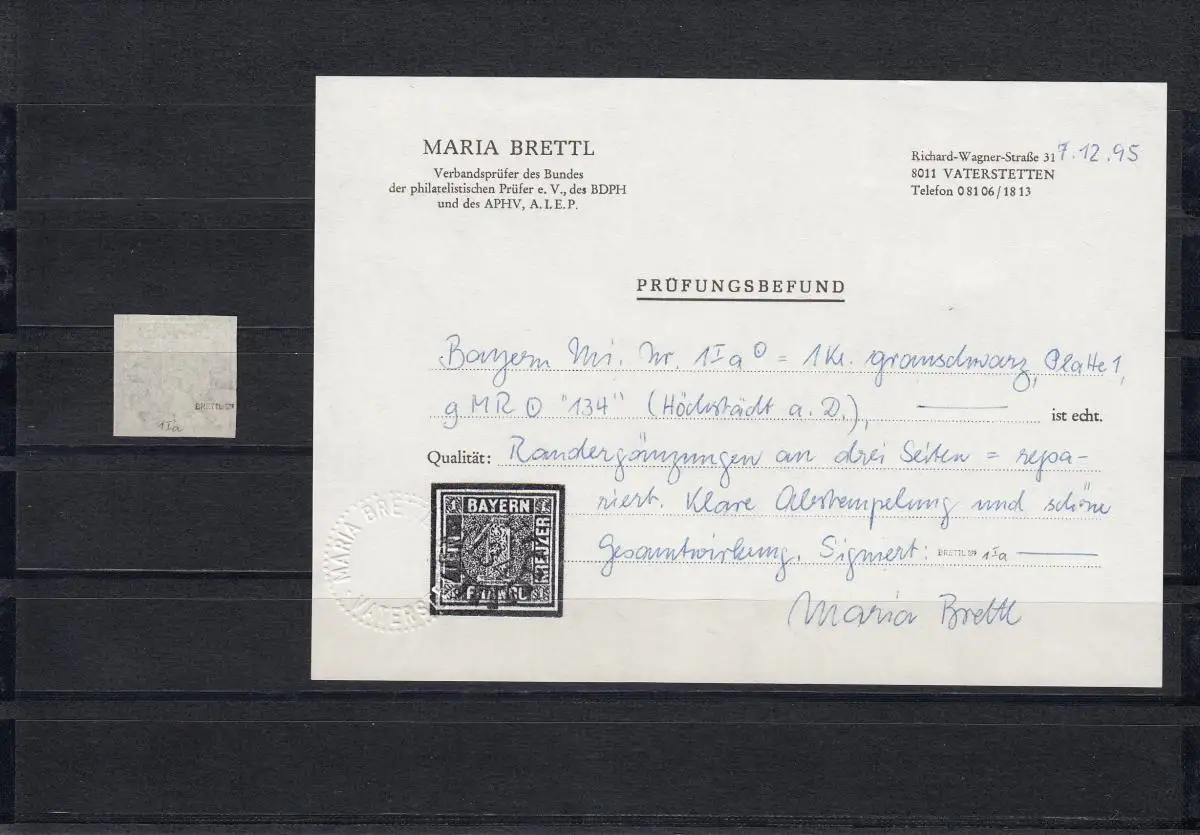 MARIA BRETTL
Verbandsprüfer des Bundes
der philatelistischen Prüfer e. V., des BDPH
und des APHV, A.I.E.P.
Richard-Wagner-Straße 31 7.12.95
8011 VATERSTETTEN
Telefon 08106/1813
PRÜFUNGSBEFUND
Bayern Mi. Nr. 1Ia⊙ = 1 Kr. grauschwarz, Platte 1,
gMR ⊙ "134" (Höchstädt a. D.), ist echt.
Qualität: Randergänzungen an drei Seiten = repa-
riert. Klare Abstempelung und schöne
Gesamtwirkung. Signiert: BRETTL BPP 1Ia
Maria Brettl
MARIA BRE
VATERS
1 BAYERN 1
KREUZER
BRETTL BPP
1Ia